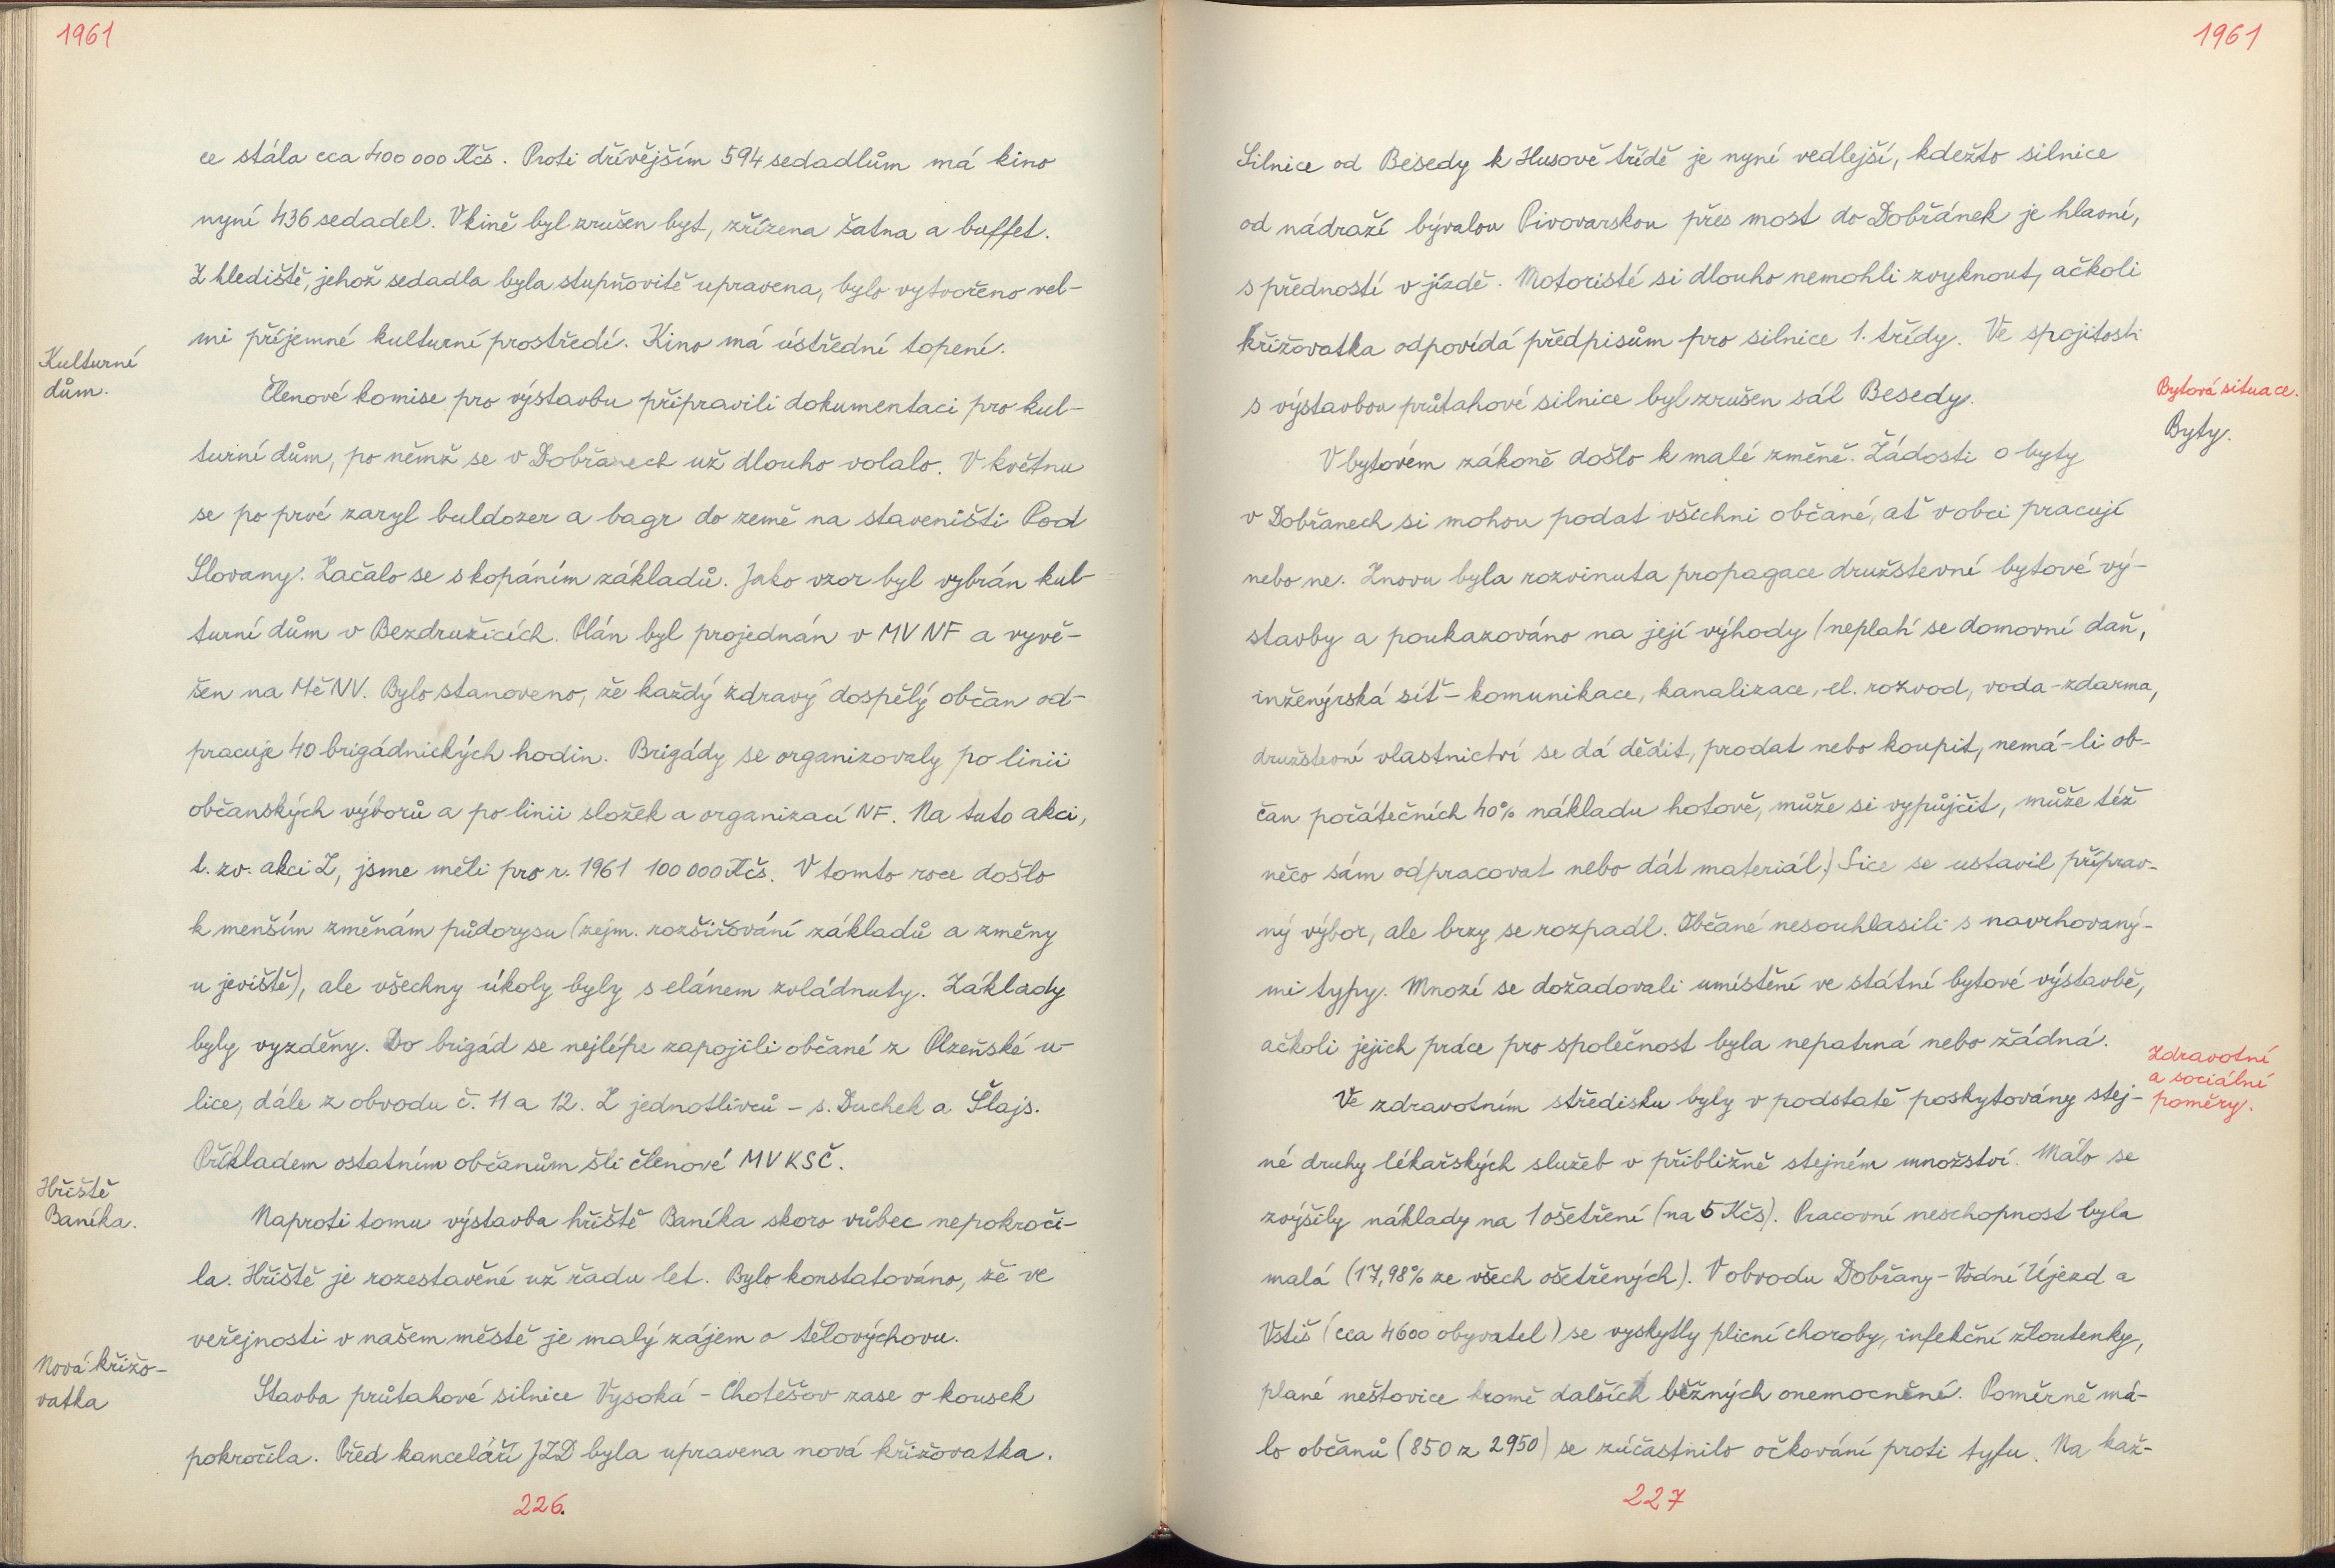 1961
ce stála cca 400 000 Kčs. Proti dřívějším 594 sedadlům má kino
nyní 436 sedadel. V kině byl zrušen byt, zřízena šatna a buffet.
Z hlediště, jehož sedadla byla stupňovitě upravena, bylo vytvořeno vel-
mi příjemné kulturní prostředí. Kino má ústřední topení.
Kulturní
dům.
Členové komise pro výstavbu připravili dokumentaci pro kul-
turní dům, po němž se v Dobřanech už dlouho volalo. V květnu
se po prvé zaryl buldozer a bagr do země na staveništi Pod
Slovany. Začalo se s kopáním základů. Jako vzor byl vybrán kul-
turní dům v Bezdružicích. Plán byl projednán v MV NF a vyvě-
šen na MěNV. Bylo stanoveno, že každý zdravý dospělý občan od-
pracuje 40 brigádnických hodin. Brigády se organizovaly po linii
občanských výborů a po linii složek a organizací NF. Na tuto akci,
t. zv. akci Z, jsme měli pro r. 1961 100 000 Kčs. V tomto roce došlo
k menším změnám půdorysu (zejm. rozšiřování základů a změny
u jeviště), ale všechny úkoly byly s elánem zvládnuty. Základy
byly vyzděny. Do brigád se nejlépe zapojili občané z Plzeňské u-
lice, dále z obvodu č. 11 a 12. Z jednotlivců - s. Duchek a Šlajs.
Příkladem ostatním občanům šli členové MV KSČ.
Hřiště
Baníka.
Naproti tomu výstavba hřiště Baníka skoro vůbec nepokroči-
la. Hřiště je rozestavěné už řadu let. Bylo konstatováno, že ve
veřejnosti v našem městě je malý zájem o tělovýchovu.
Nová křižo-
vatka
Stavba průtahové silnice Vysoká - Chotěšov zase o kousek
pokročila. Před kanceláří JZD byla upravena nová křižovatka.
226.
1961
Silnice od Besedy k Husově třídě je nyní vedlejší, kdežto silnice
od nádraží bývalou Pivovarskou přes most do Dobřánek je hlavní,
s předností v jízdě. Motoristé si dlouho nemohli zvyknout, ačkoli
křižovatka odpovídá předpisům pro silnice 1. třídy. Ve spojitosti
s výstavbou průtahové silnice byl zrušen sál Besedy.
Bytová situace.
Byty.
V bytovém zákoně došlo k malé změně. Žádosti o byty
v Dobřanech si mohou podat všichni občané, ať v obci pracují
nebo ne. Znovu byla rozvinuta propagace družstevní bytové vý-
stavby a poukazováno na její výhody (neplatí se domovní daň,
inženýrská síť - komunikace, kanalizace, el. rozvod, voda - zdarma,
družstevní vlastnictví se dá dědit, prodat nebo koupit, nemá-li ob-
čan počátečních 40% nákladu hotově, může si vypůjčit, může též
něco sám odpracovat nebo dát materiál.) Sice se ustavil příprav-
ný výbor, ale brzy se rozpadl. Občané nesouhlasili s navrhovaný-
mi typy. Mnozí se dožadovali umístění ve státní bytové výstavbě,
ačkoli jejich práce pro společnost byla nepatrná nebo žádná.
Zdravotní
a sociální
poměry.
Ve zdravotním středisku byly v podstatě poskytovány stej-
né druhy lékařských služeb v přibližně stejném množství. Málo se
zvýšily náklady na 1 ošetření (na 5 Kčs). Pracovní neschopnost byla
malá (17,98% ze všech ošetřených). V obvodu Dobřany - Vodní Újezd a
Vstiš (cca 4600 obyvatel) se vyskytly plicní choroby, infekční žloutenky,
plané neštovice kromě dalších běžných onemocnění. Poměrně má-
lo občanů (850 z 2950) se zúčastnilo očkování proti tyfu. Na kaž-
227